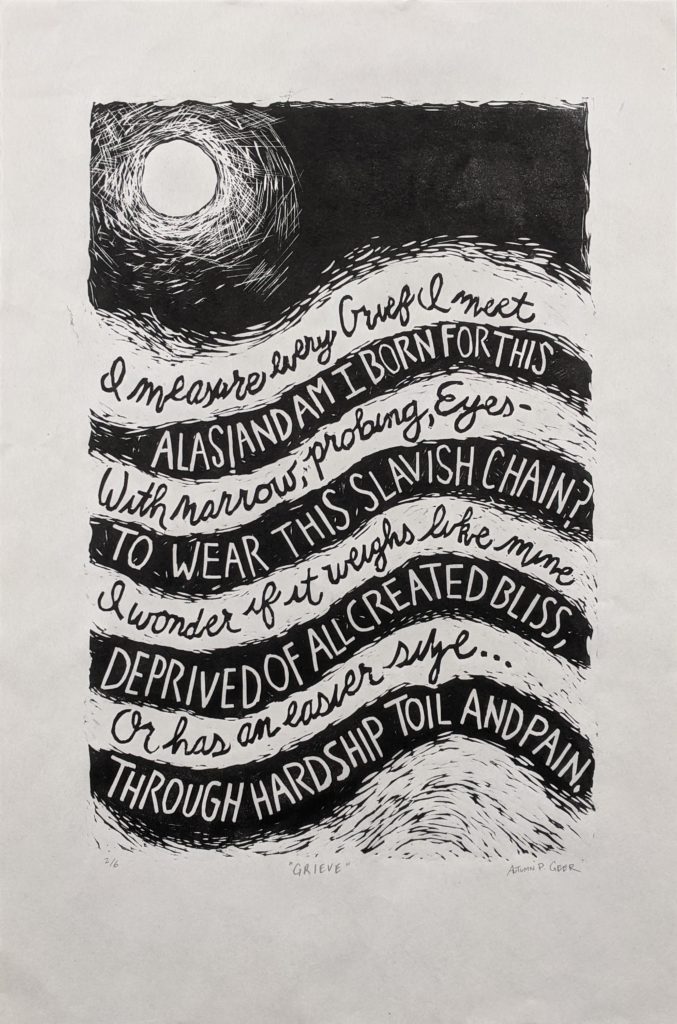 I measure every Grief I meet
ALAS! AND AM I BORN FOR THIS
With narrow, probing, Eyes-
TO WEAR THIS SLAVISH CHAIN?
I wonder if it weighs like mine
DEPRIVED OF ALL CREATED BLISS,
Or has an easier size...
THROUGH HARDSHIP TOIL AND PAIN.
2/6 "GRIEVE" AUTUMN P. GEER